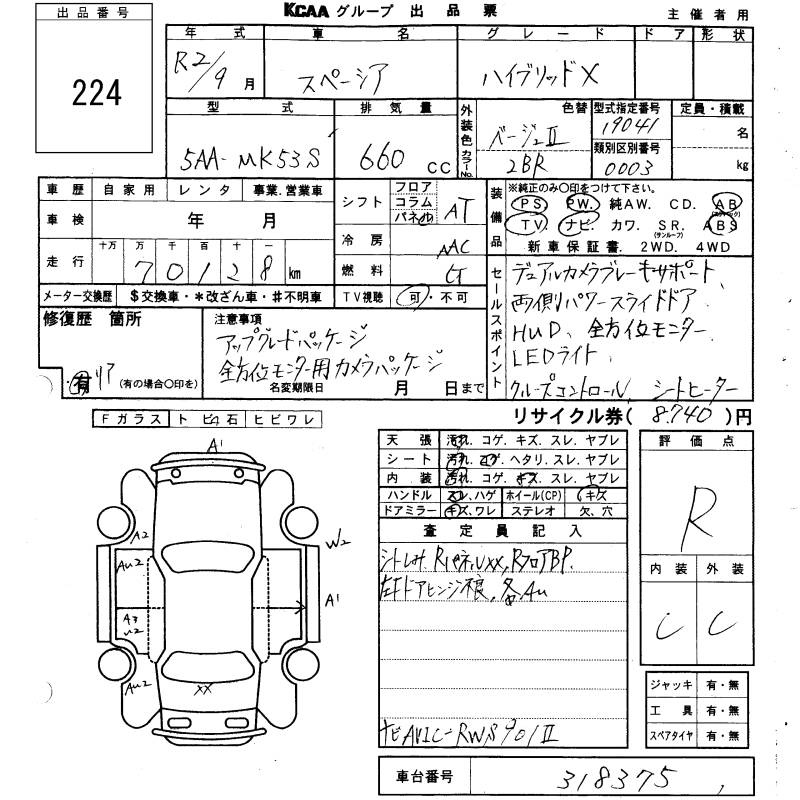 出品番号
224
KCAA グループ 出品票
主催者用
年式 車名 グレード ドア 形状
R2/9月 スペーシア ハイブリッドX
型式 排気量 外装色 カラーNo. 色替 型式指定番号 定員・積載
5AA-MK53S 660cc ベージュII 2BR 19041 名
類別区別番号
0003 kg
車歴 自家用 レンタ 事業.営業車
車検 年 月
走行 十万 万 千 百 十 一
70128km
メーター交換歴 $交換車・*改ざん車・#不明車
シフト フロア コラム パネル AT
冷房 AAC
燃料 G
TV視聴 可・不可
装備品
※純正のみ〇印をつけて下さい。
PS PW. 純AW. CD. AB(エアバック)
TV ナビ. カワ. SR.(サンルーフ) ABS
新車保証書. 2WD. 4WD
セールスポイント
デュアルカメラブレーキサポート
両側パワースライドドア
HUD、全方位モニター
LEDライト、
クルーズコントロール、シートヒーター
修復歴 箇所
有 リア (有の場合〇印を)
注意事項
アップグレードパッケージ
全方位モニター用カメラパッケージ
名変期限日 月 日まで
リサイクル券(8,740)円
Fガラス トビ石 ヒビワレ
A1
A2
W2
AU2
A1
A3
U2
AU2
XX
天張 汚れ. コゲ. キズ. スレ. ヤブレ
シート 汚れ. コゲ. ヘタリ. スレ. ヤブレ
内装 汚れ. コゲ. キズ. スレ. ヤブレ
ハンドル スレ. ハゲ ホイール(CP) キズ
ドアミラー キズ. ワレ ステレオ 欠、穴
査定員記入
シトしみ. RパネルXX, RフロアBP.
左Fドアヒンジ不良, 各AU
ナビAVIC-RWS901II
評価点
R
内装 外装
C C
ジャッキ 有・無
工具 有・無
スペアタイヤ 有・無
車台番号 318375